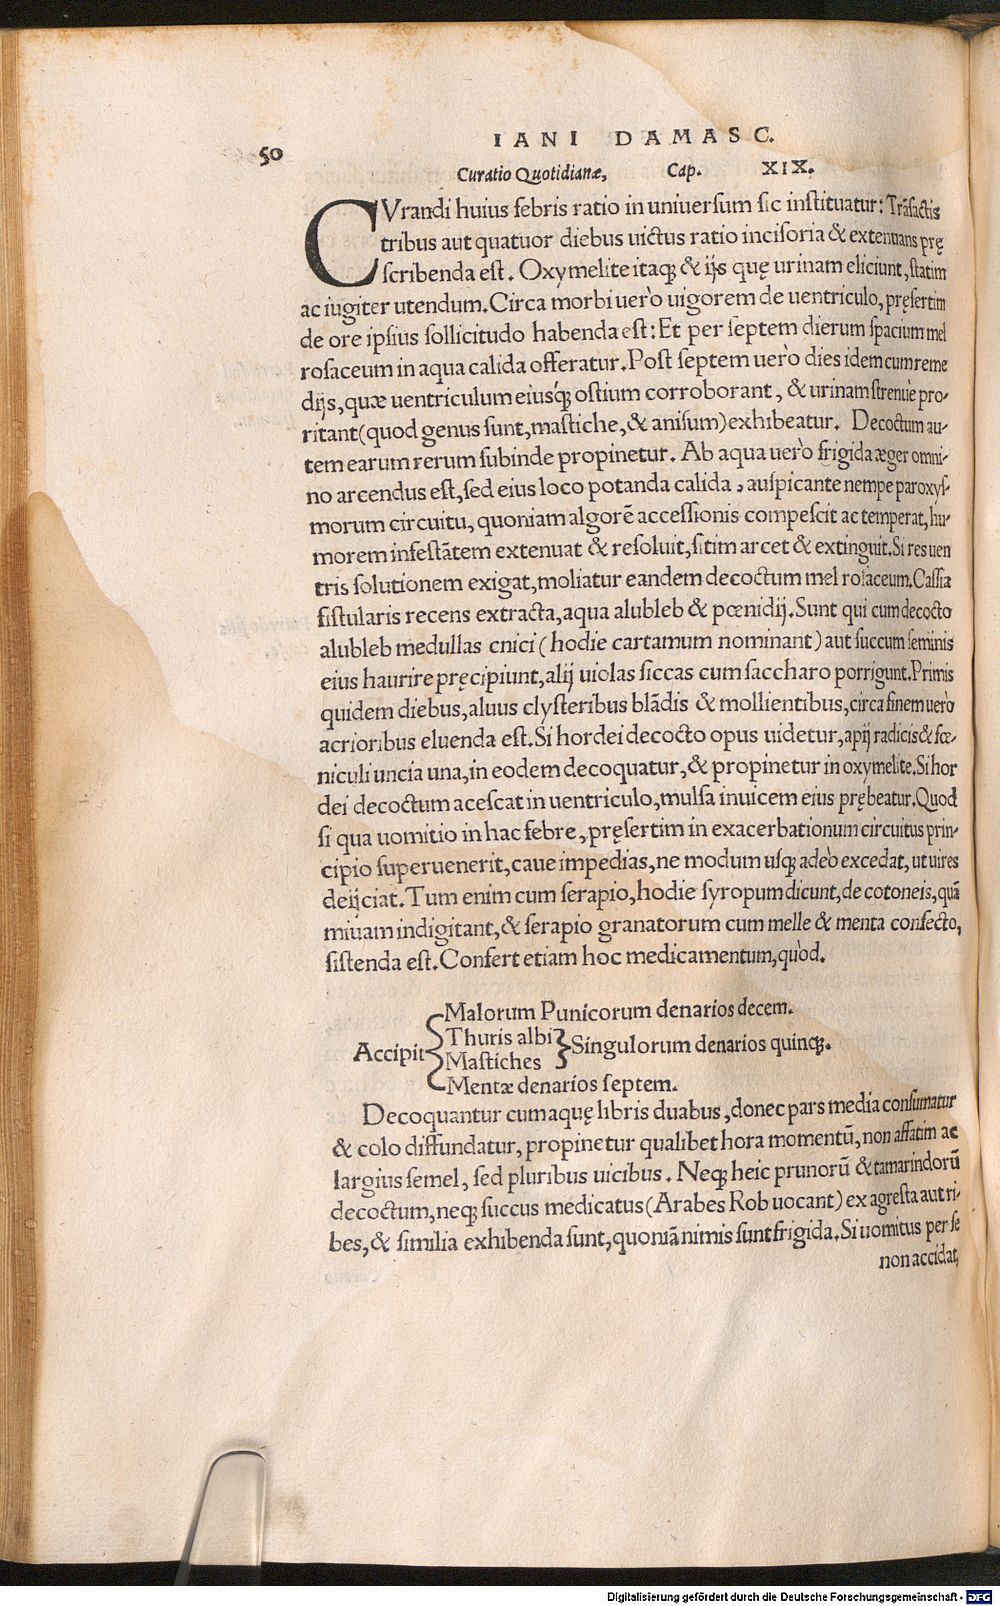 50
IANI DAMASC.
Curatio Quotidianæ, Cap. XIX.
CVrandi huius febris ratio in uniuersum sic instituatur: Trãsactis
tribus aut quatuor diebus uictus ratio incisoria & extenuans prę
scribenda est. Oxymelite itaq; & ijs quę urinam eliciunt, statim
ac iugiter utendum. Circa morbi uerò uigorem de uentriculo, pręsertim
de ore ipsius sollicitudo habenda est: Et per septem dierum spacium mel
rosaceum in aqua calida offeratur. Post septem uerò dies idem cum reme
dijs, quæ uentriculum eiusq́; ostium corroborant, & urinam strenuè pro-
ritant (quod genus sunt, mastiche, & anisum) exhibeatur. Decoctum au-
tem earum rerum subinde propinetur. Ab aqua uerò frigida æger omni-
no arcendus est, sed eius loco potanda calida, auspicante nempe paroxys-
morum circuitu, quoniam algorẽ accessionis compescit ac temperat, hu-
morem infestãtem extenuat & resoluit, sitim arcet & extinguit. Si res uen
tris solutionem exigat, moliatur eandem decoctum mel rosaceum. Cassia
fistularis recens extracta, aqua alubleb & pœnidij. Sunt qui cum decocto
alubleb medullas cnici (hodie cartamum nominant) aut succum seminis
eius haurire pręcipiunt, alij uiolas siccas cum saccharo porrigunt. Primis
quidem diebus, aluus clysteribus blãdis & mollientibus, circa finem uerò
acrioribus eluenda est. Si hordei decocto opus uidetur, apij radicis & fœ-
niculi uncia una, in eodem decoquatur, & propinetur in oxymelite. Si hor
dei decoctum acescat in uentriculo, mulsa inuicem eius prębeatur. Quod
si qua uomitio in hac febre, pręsertim in exacerbationum circuitus prin-
cipio superuenerit, caue impedias, ne modum usq; adeò excedat, ut uires
deijciat. Tum enim cum serapio, hodie syropum dicunt, de cotoneis, quã
miuam indigitant, & serapio granatorum cum melle & menta confecto,
sistenda est. Confert etiam hoc medicamentum, quòd.
Accipit
Malorum Punicorum denarios decem.
Thuris albi
Mastiches
Singulorum denarios quinq;.
Mentæ denarios septem.
Decoquantur cum aquę libris duabus, donec pars media consumatur
& colo diffundatur, propinetur qualibet hora momentũ, non affatim ac
largius semel, sed pluribus uicibus. Neq; heic prunorũ & tamarindorũ
decoctum, neq; succus medicatus (Arabes Rob uocant) ex agresta aut ri-
bes, & similia exhibenda sunt, quoniã nimis sunt frigida. Si uomitus per se
non accidat,
Digitalisierung gefördert durch die Deutsche Forschungsgemeinschaft - DFG